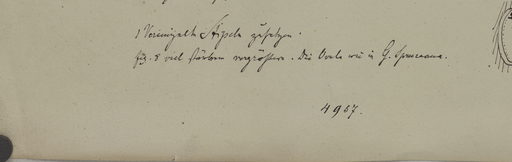 1 Vereinzelte Stipeln zusetzen.
Fig. 8 viel stärker vergrößern. Die Ovula wie in G. Spruceana.
4967.